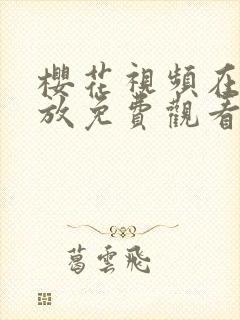 櫻花視頻在
放免費觀看
葛雲飛